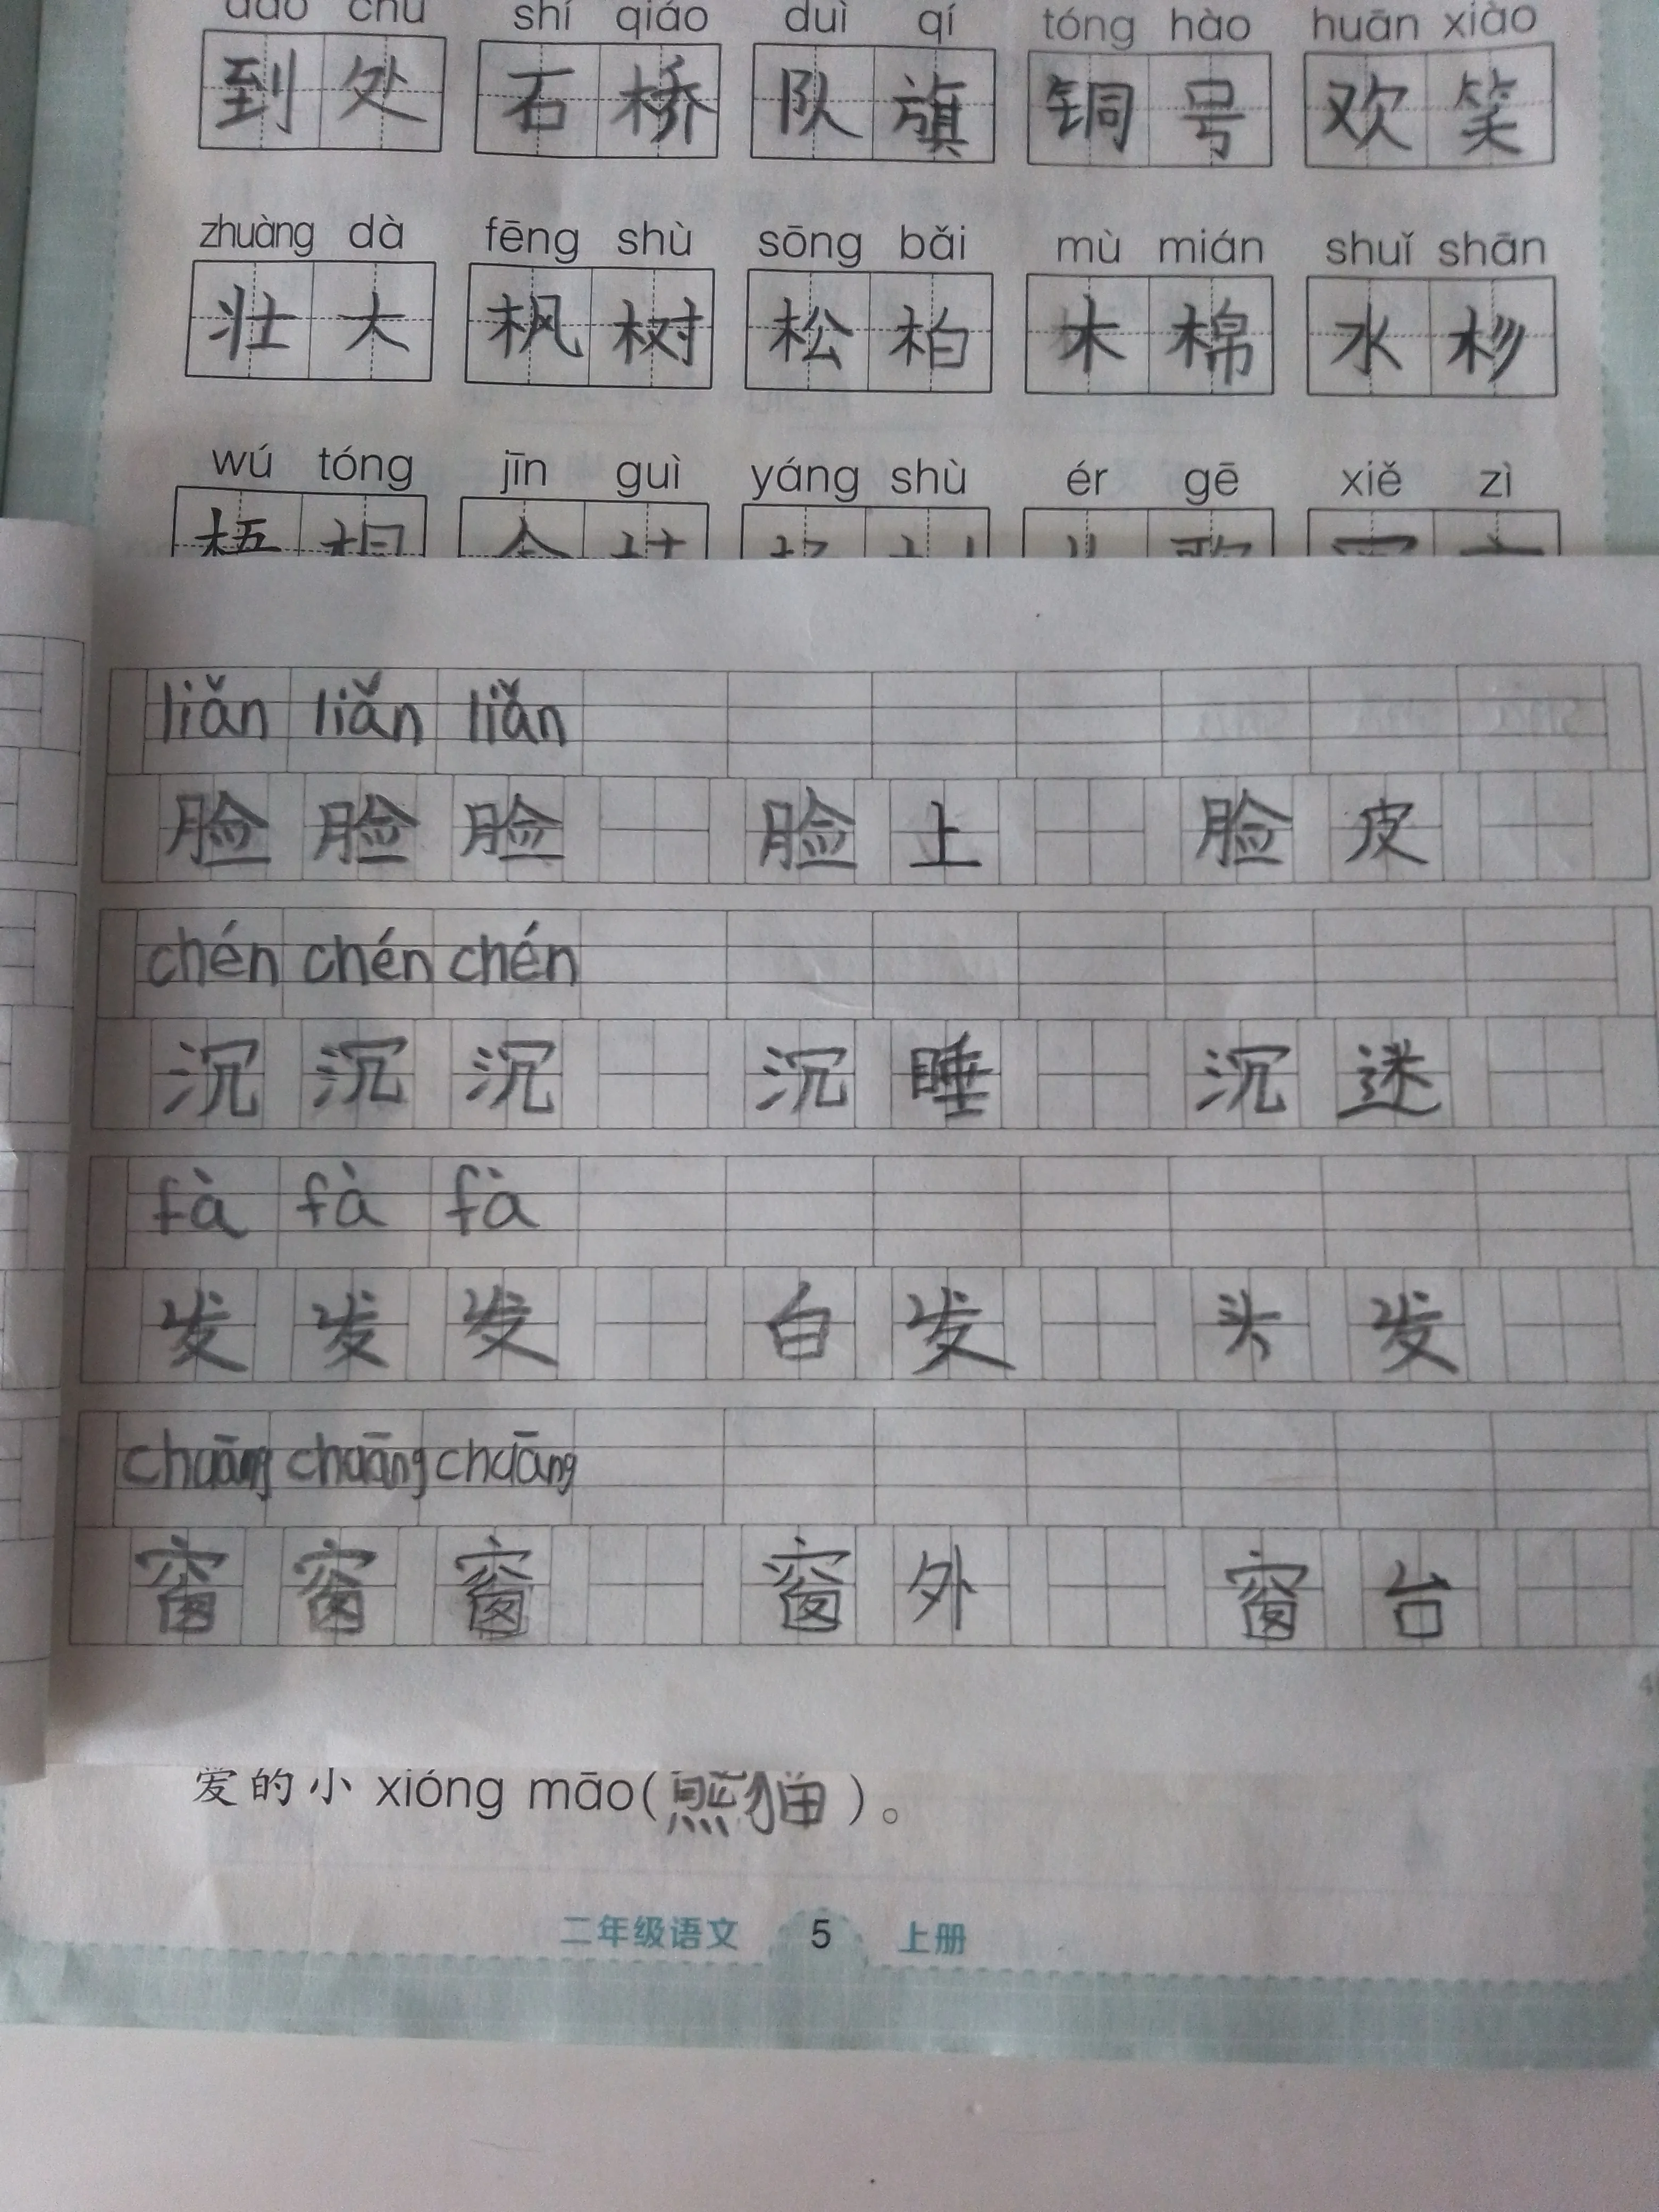 dào chù shí qiáo duì qí tóng hào huān xiào
到处 石桥 队旗 铜号 欢笑
zhuàng dà fēng shù sōng bǎi mù mián shuǐ shān
壮大 枫树 松柏 木棉 水杉
wú tóng jīn guì yáng shù ér gē xiě zì
liǎn liǎn liǎn
脸 脸 脸 脸上 脸皮
chén chén chén
沉 沉 沉 沉睡 沉迷
fà fà fà
发 发 发 白发 头发
chuāng chuāng chuāng
窗 窗 窗 窗外 窗台
爱的小 xióng māo(熊猫)。
二年级语文 5 上册